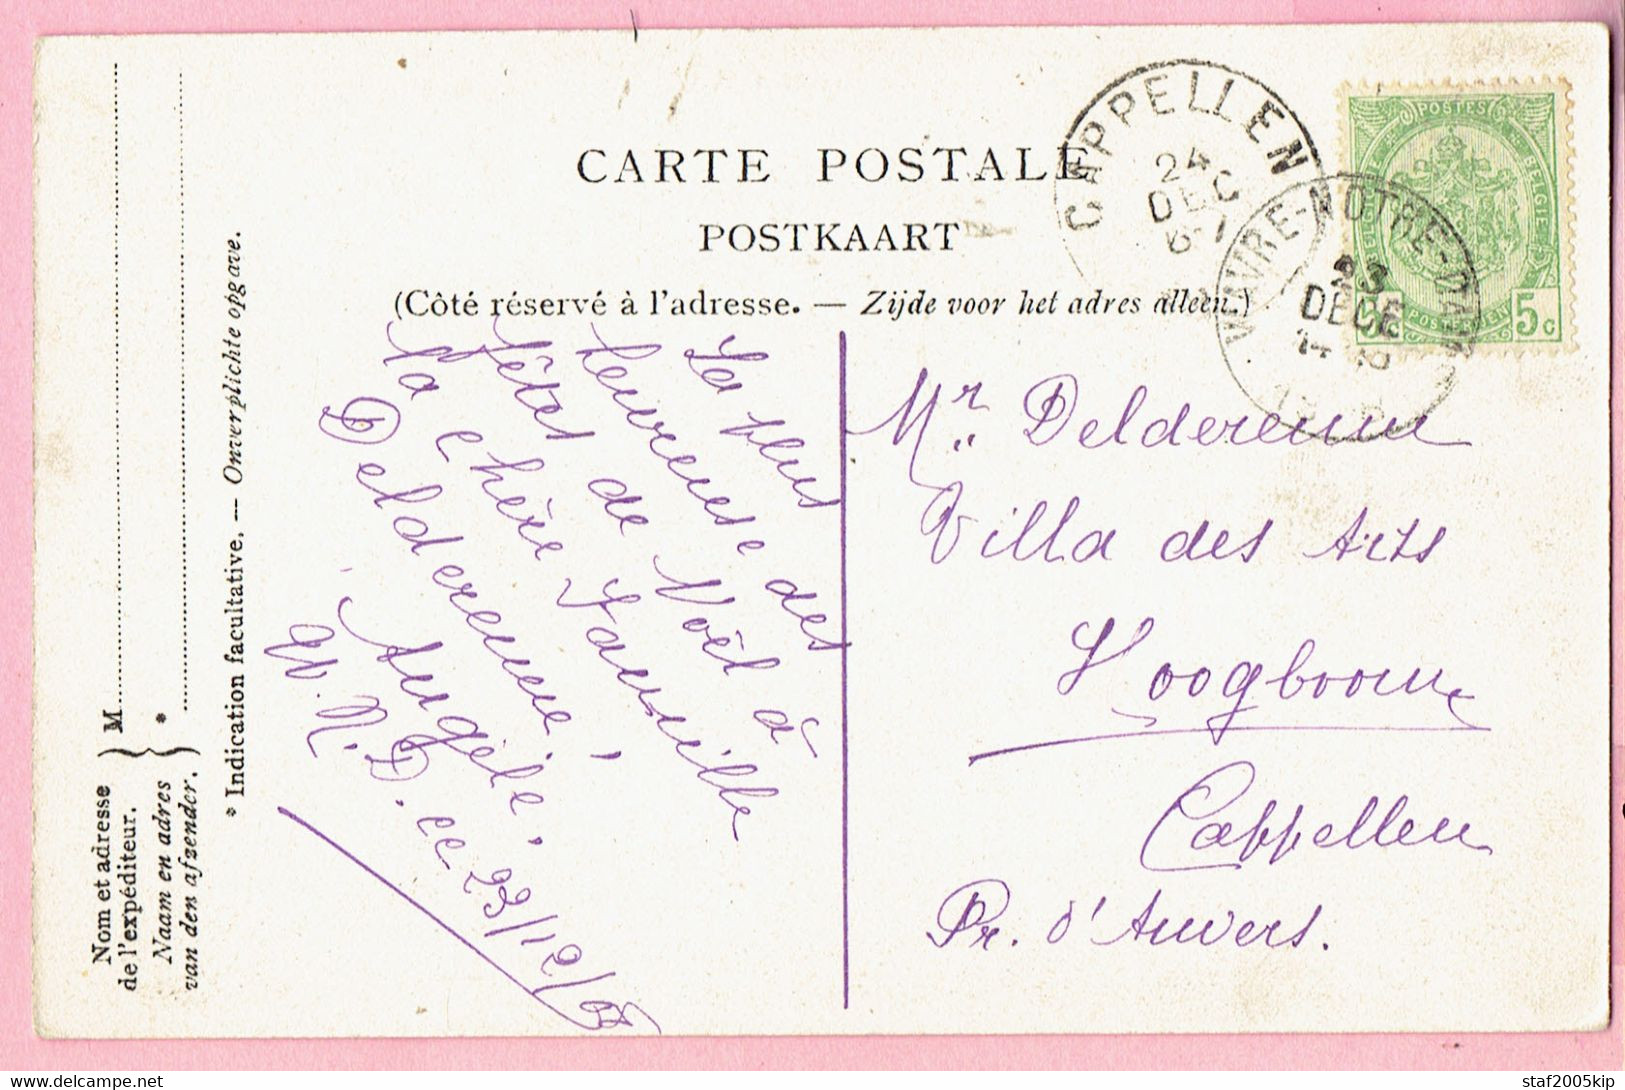 CARTE POSTALE
POSTKAART
(Côté réservé à l'adresse. — Zijde voor het adres alleen.)
CAPPELLEN
24
DEC
WAVRE-NOTRE-DAME
23
DECE
POSTES
BELGIE
5c
La plus
heureuse des
fêtes de Noël à
la chère Famille
Delderenne,
Angèle.
W. N. D. ce 23/12/08
Mr. Delderenne
Villa des Arts
Hoogboom
Cappellen
Pr. d'Anvers.
Nom et adresse
de l'expéditeur.
Naam en adres
van den afzender.
M
*
* Indication facultative. — Onverplichte opgave.
staf2005kip